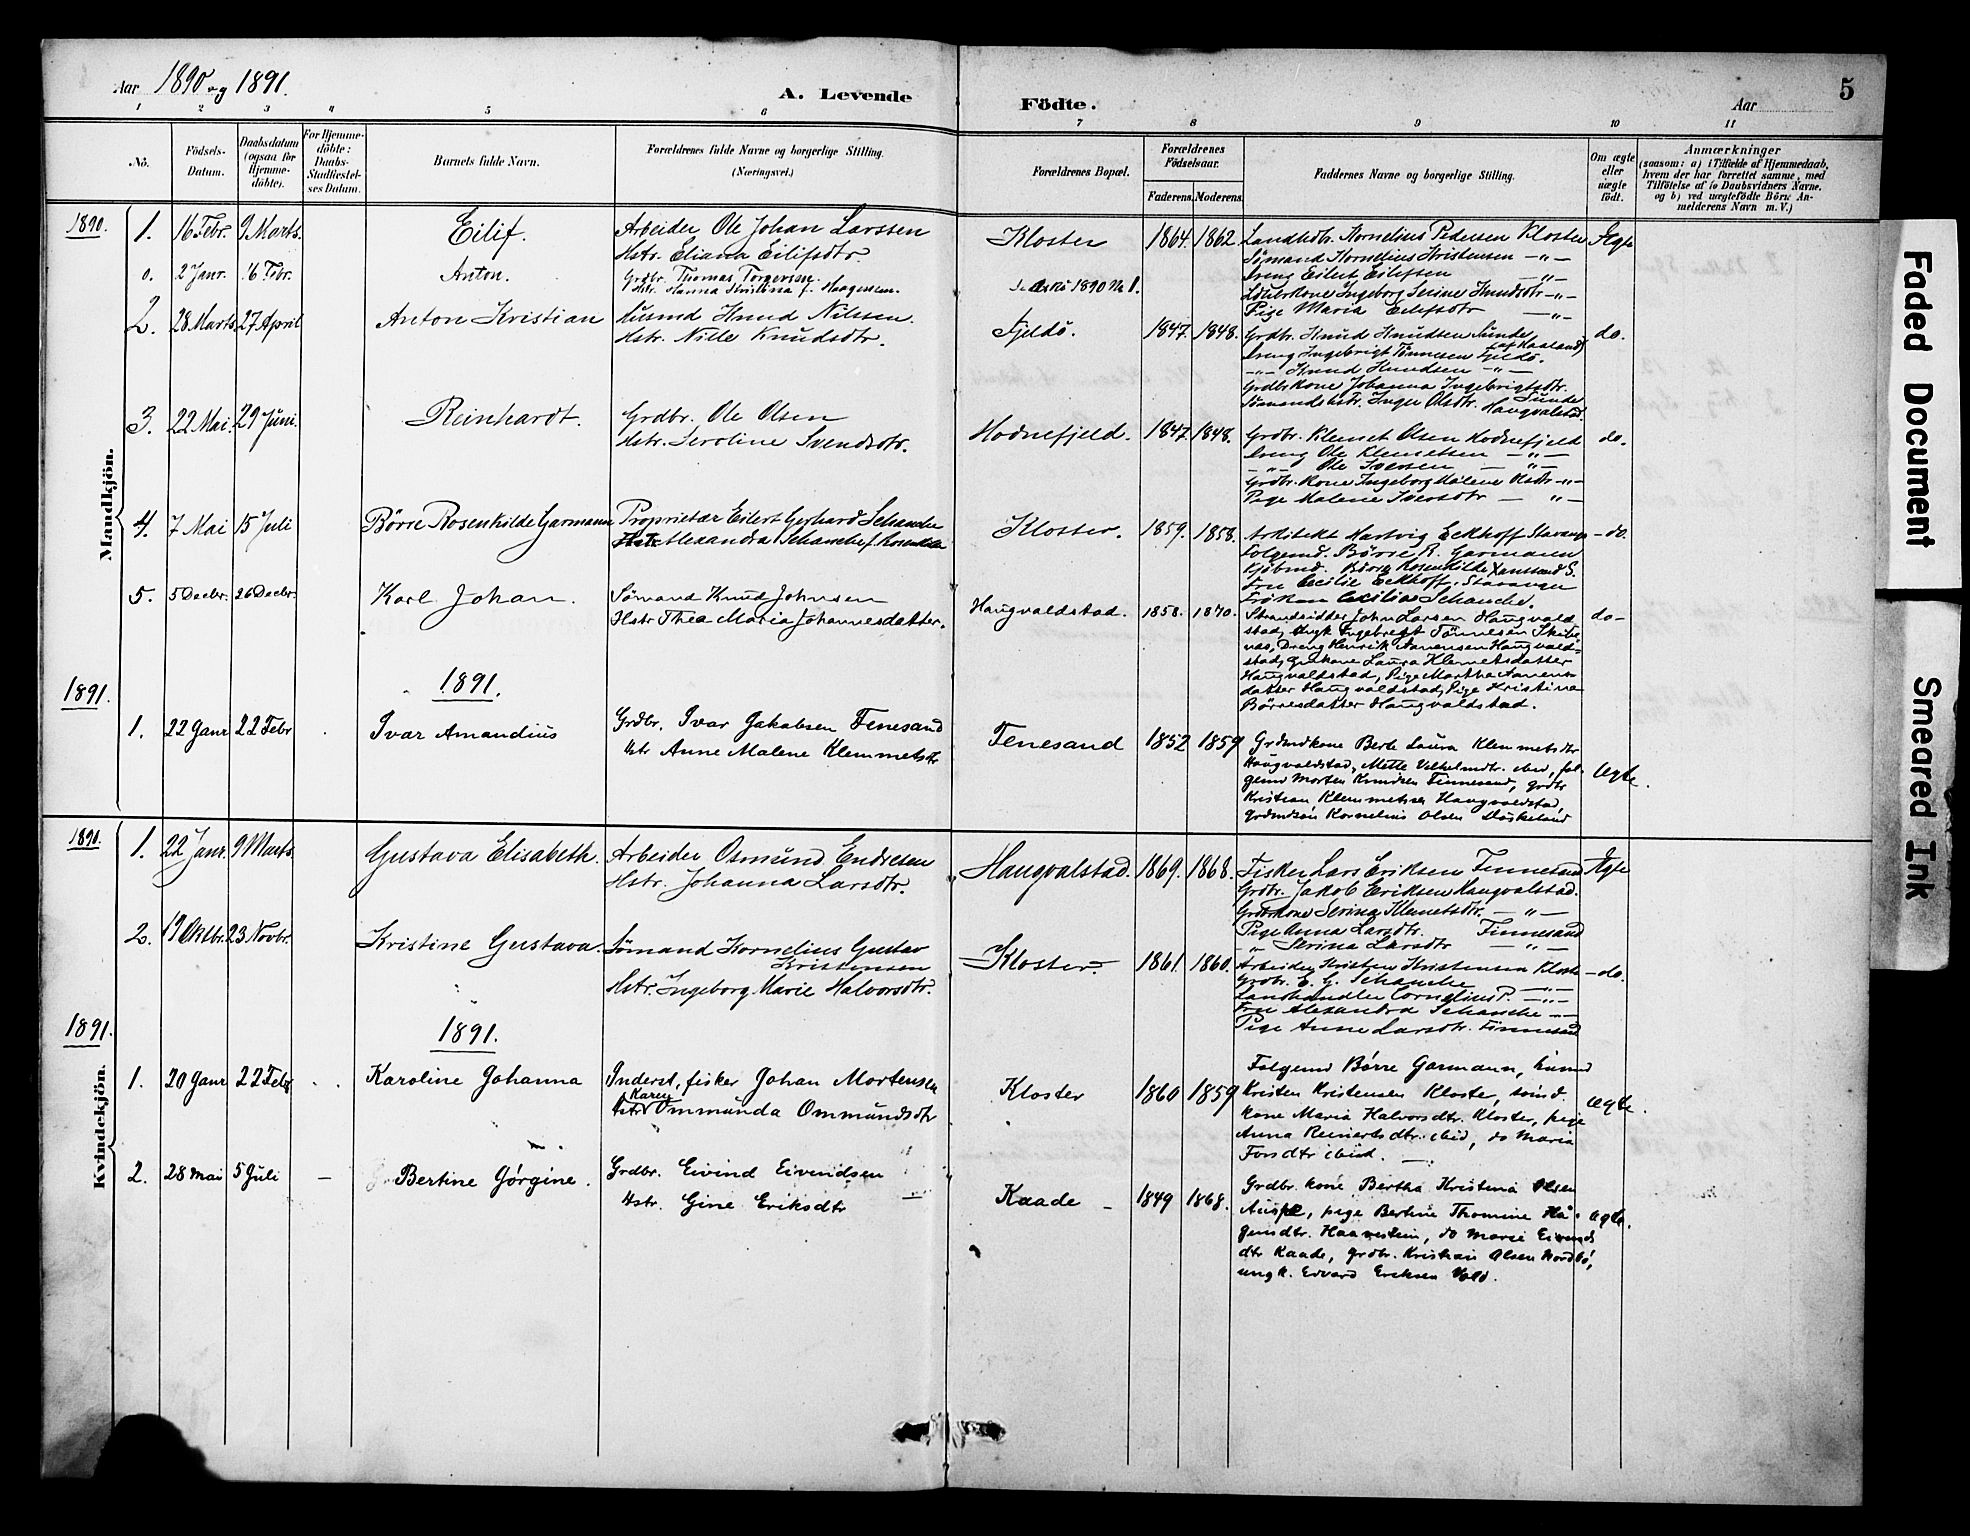 Aar 1890 og 1891. A. Levende Födte. Aar 5
1 2 3 4 5 6 7 8 9 10 11
No.
Födsels-Datum.
Daabsdatum (ogsaa for Hjemme-döbte).
For Hjemme-döbte: Daabs-Stadfæstel-ses Datum.
Barnets fulde Navn.
Forældrenes fulde Navne og borgerlige Stilling. (Næringsvei.)
Forældrenes Bopæl.
Forældrenes Födselsaar.
Faderens. Moderens.
Faddernes Navne og borgerlige Stilling.
Om ægte eller uægte födt.
Anmærkninger
(saasom: a) i Tilfælde af Hjemmedaab,
hvem der har forrettet samme, med
Tilföielse af to Daabsvidners Navne.
og b) ved uægtefödte Börn: An-
melderens Navn m. V.)
Mandkjön.
1890. 1. 16 Febr. 9 Marts. Eilif.
Arbeider Ole Johan Larssen
Hstr. Eliana Eilifsdtr.
Kloster 1864. 1862.
Landhdlr. Kornelius Pedersen Kloster
Sømand Kornelius Kristensen -"-
Dreng Eilert Eilefsen -"-
Ingeborg Serine Knudsdtr -"-
Pige Maria Eilefsdtr -"-
Ægte
0. 2 Janr. 16 Febr. Anton.
Grdbr. Thomas Torgersen.
Hstr. Hanna Kristina f. Haagensen.
1890 No 1.
2. 28 Marts 27 April Anton Kristian
Husmd Knud Nilssen.
Hstr. Nille Knudsdtr.
Fjeldö. 1847. 1848.
Grdbr. Knud Knudsen Sunde (af Haaland)
Dreng Ingebrigt Tönnesen Fjeldö.
-"- Knud Knudsen -"-
Grdbrkone Johanna Ingebrigtsdtr. Sunde
Sömandshstr. Inger Olsdtr. Haugvalstad.
do.
3. 22 Mai. 29 Juni. Reinhardt.
Grdbr. Ole Olsen
Hstr. Seroline Svendsdtr.
Hodnefjeld. 1847. 1848.
Grdbr. Klemet Olsen Hodnefjeld
Dreng Ole Klemetsen -"-
-"- Ole Iversen -"-
Grdbr. Kone Ingeborg Malene Olsdtr -"-
Pige Malene Iversdtr -"-
do.
4. 7 Mai 15 Juli Börre Rosenkilde Garmann
Proprietær Eilert Gerhard Schanche
Hstr. Alexandra Schanche f. Rosenkilde
Kloster. 1859. 1858.
Arkitekt Hartvig Eckhoff Stavanger
Folgemd. Börre R. Garmann
Kjöbmd. Börre Rosenkilde S.
Fru Cecilie Eckhoff, Stavanger
Fröken Cecilia Schanche.
do.
5. 5 Decbr. 26 Decbr. Karl Johan.
Sömand Knud Johnsen
Hstr Thea Maria Johannesdatter.
Haugvaldstad. 1858. 1870.
Strandsidder John Larsen Haugvald-
stad, Ungk Ingebregt Tönnesen Skibe-
næs, Dreng Henrik Aanensen Haugvald-
stad, Grdkone Laura Klemetsdatter
Haugvaldstad, Pige Martha Aanens-
datter Haugvaldstad, Pige Kristine
Börresdatter Haugvaldstad.
do-
1891. 1891.
1. 22 Janr 22 Febr Ivar Amandius
Grdbr. Ivar Jakobsen Fenesand
hstr Anne Malene Klemmetsdtr
Fenesand 1852 1859
Grdmdkone Berte Laura Klemmetsdtr
Haugvaldstad, Mette Velhelmdtr. ibid, fol-
gemd Morten Knudsen Finnesand, grdbr
Kristian Klemmetsen Haugvaldstad,
grdmdsön Kornelius Olsen Döskeland
ægte.
Kvindekjön.
1890. 1. 22 Janr. 9 Marts Gustava Elisabeth.
Arbeider Osmund Endresen
Hstr. Johanna Larsdtr.
Haugvalstad. 1869. 1868.
Fisker Lars Eriksen Finnesand
Grdbr. Jakob Eriksen Haugvalstad.
Grdbrkone Serina Klemetsdtr. -"-
Pige Anna Larsdtr. Finnesand
-"- Serina Larsdtr -"-
Ægte
2. 19 Oktbr. 23 Novbr. Kristine Gustava.
Sömand Kornelius Gustav
Kristensen
Hstr. Ingeborg Marie Halvorsdtr.
Kloster. 1861. 1860.
Arbeider Kristen Kristensen Kloster
Grdbr. E. G. Schanche -"-
Landhandler Cornelius P. -"-
Fru Alexandra Schanche -"-
Pige Anne Larsdtr. Finnesand
do.
1891. 1891.
1. 20 Janr 22 Febr Karoline Johanna
Inderst, fisker Johan Mortensen
Karen
hstr Ommunda Ommundsdtr
Kloster 1860 1859
Folgemd Börre Garmann, husmd
Kristen Kristensen Kloster, sömd.
kone Maria Halvorsdtr. Kloster, pige
Anna Reinertsdtr. ibid, do Maria
Forsdtr ibid.
ægte.
2. 28 Mai 5 Juli - Bertine Görgine.
Grdbr. Eivind Eivindsen
Hstr. Gine Eriksdtr
Kaade - 1849 1868.
Grdbr. kone Bertha Kristina Olsen
Auspe, pige Bertine Thomine Ha-
gundtr. Haavestein, do Marie Eivinds
dtr Kaade, grdbr. Kristian Olsen Nordbö,
ungk. Edvard Eriksen Vold.
ægte.
Faded Document
Smeared Ink